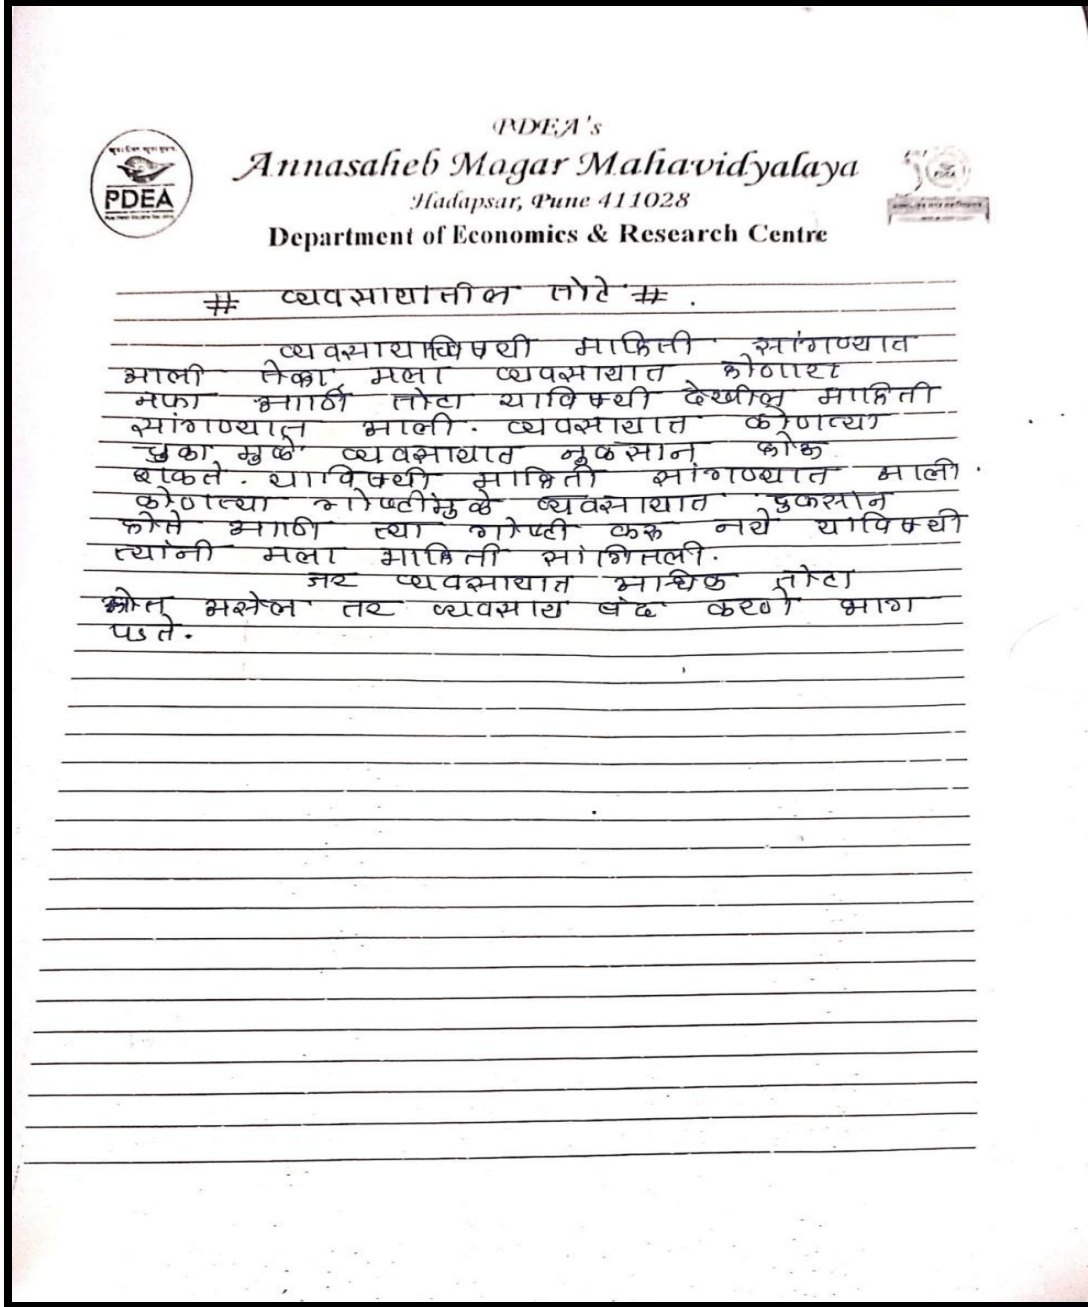 PDEA's
Annasaheb Magar Mahavidyalaya
Hadapsar, Pune 411028
Department of Economics & Research Centre
PDEA
# व्यवसायातील तोटे #.
व्यवसायाविषयी माहिती सांगण्यात
आली तेंव्हा मला व्यवसायात होणारा
नफा आणि तोटा याविषयी देखील माहिती
सांगण्यात आली. व्यवसायात कोणत्या
चुका मुळे व्यवसायात नुकसान होऊ
शकते. याविषयी माहिती सांगण्यात आली.
कोणत्या गोष्टींमुळे व्यवसायात नुकसान
होते आणि त्या गोष्टी करू नये याविषयी
त्यांनी मला माहिती सांगितली.
जर व्यवसायात आर्थिक तोटा
होत असेल तर व्यवसाय बंद करणे भाग
पडते.